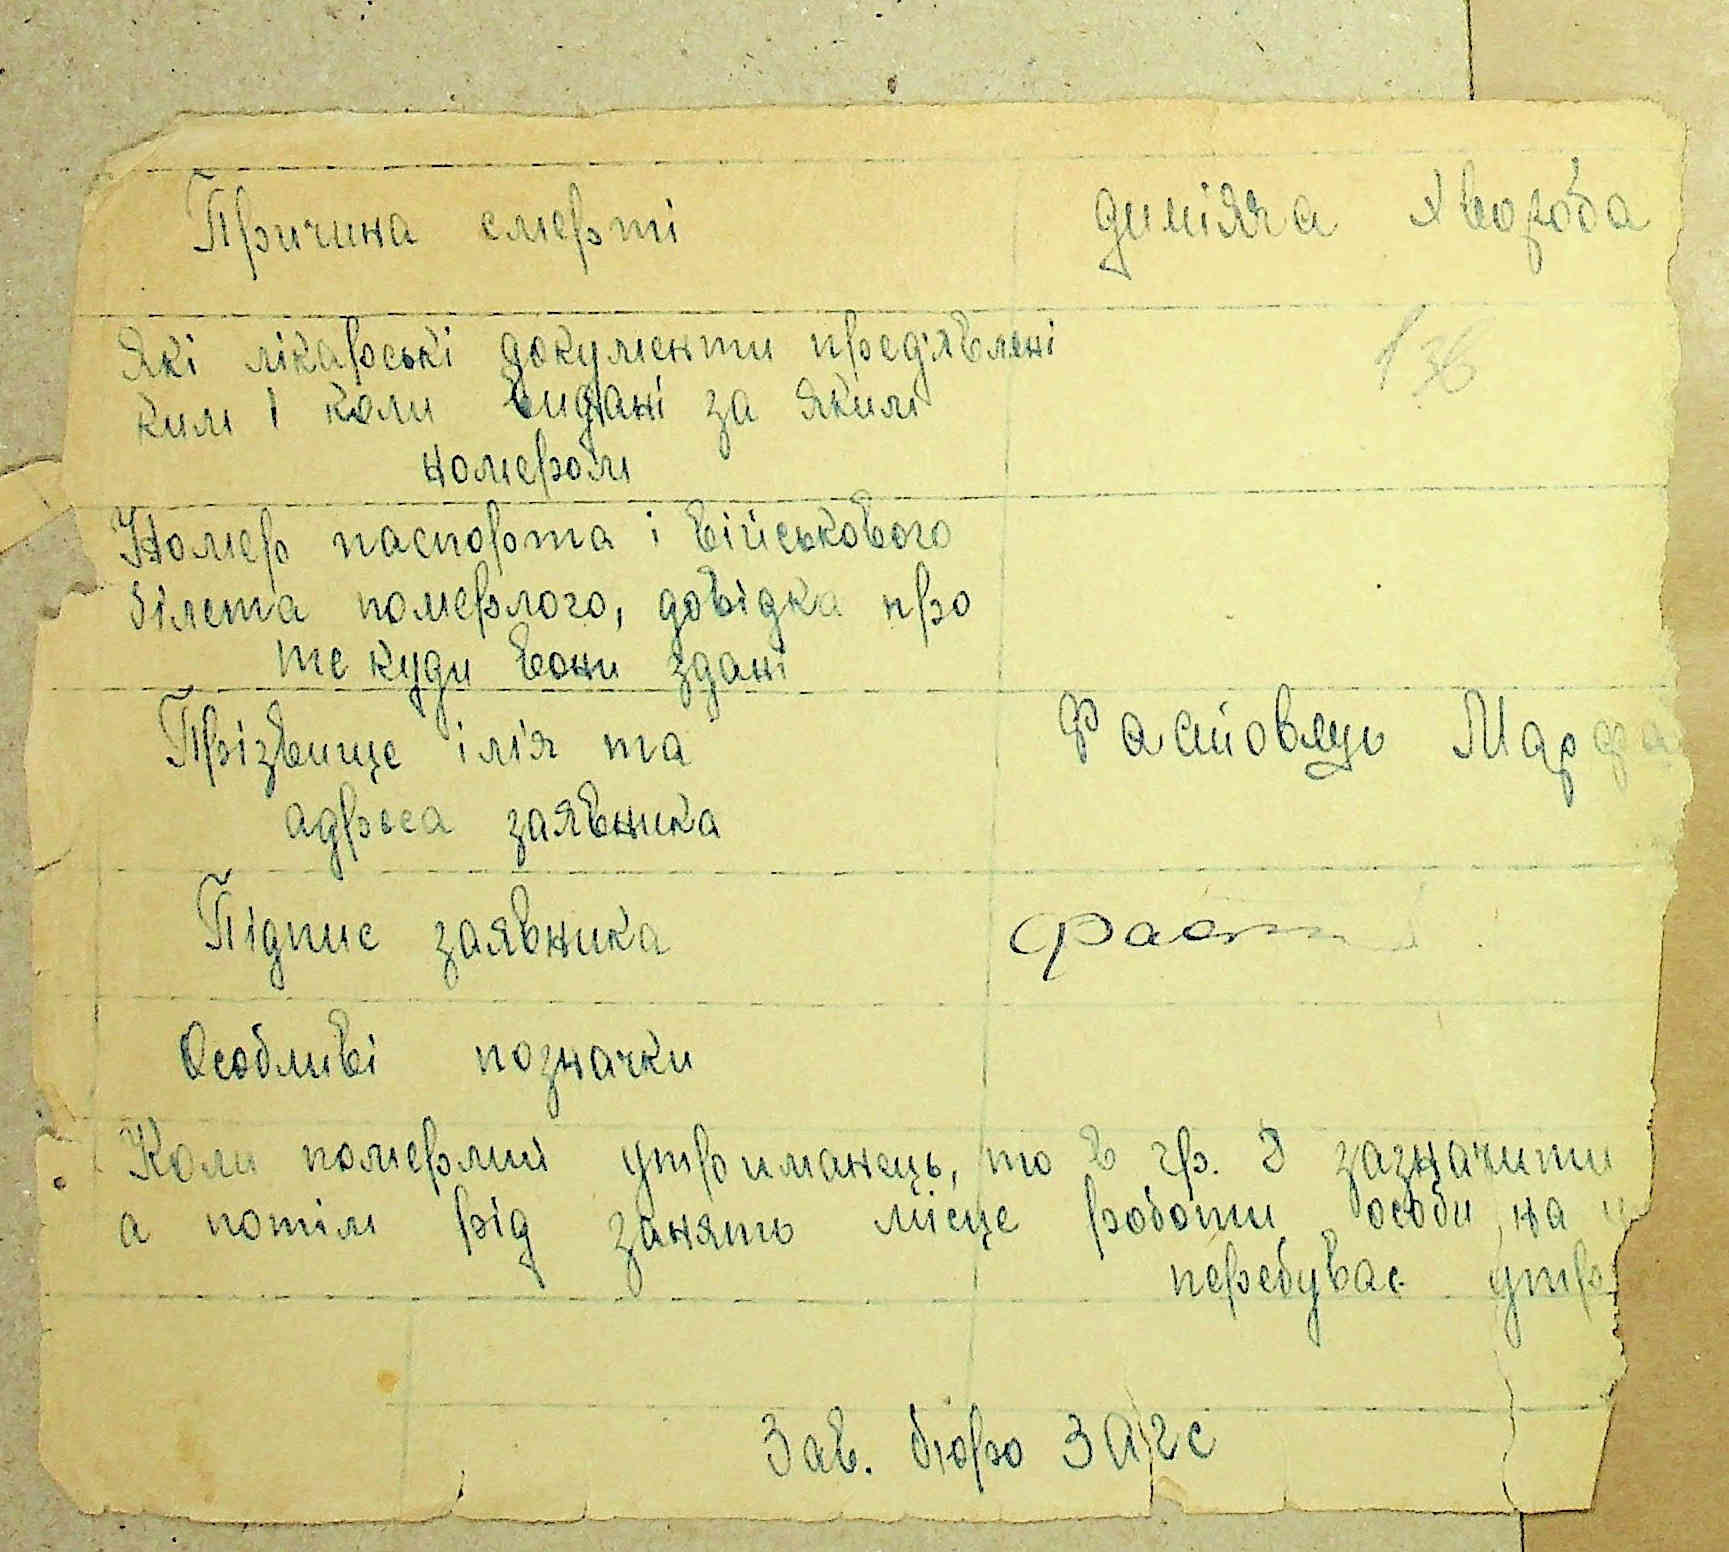 Причина смерти дитяча хвороба
Які лікарські документи предявлені
ким і коли видані за яким
номером
136
Номер паспорта і військового
білета померлого, довідка про
те куди вони здані
Прізвище імя та Фастовець Марфа
адреса заявника
Підпис заявника Фаст
Особливі позначки
Коли померлий утриманець, то в гр. 8 зазначити
а потім рід занять місце роботи особи на
перебуває утр
Зав. бюро ЗАГС